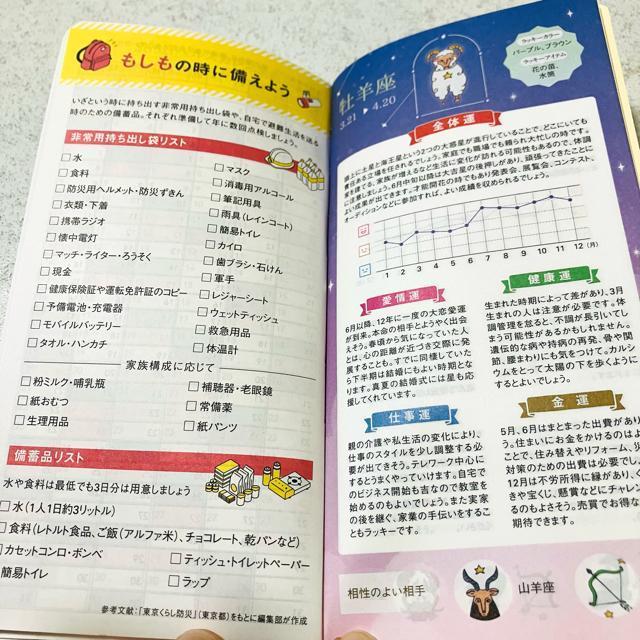 もしもの時に備えよう
いざという時に持ち出す非常用持ち出し袋や、自宅で避難生活を送る
時のための備蓄品。それぞれ準備して年に数回点検しましょう。
非常用持ち出し袋リスト
□水
□食料
□防災用ヘルメット・防災ずきん
□衣類・下着
□携帯ラジオ
□懐中電灯
□マッチ・ライター・ろうそく
□現金
□健康保険証や運転免許証のコピー
□予備電池・充電器
□モバイルバッテリー
□タオル・ハンカチ
□マスク
□消毒用アルコール
□筆記用具
□雨具(レインコート)
□簡易トイレ
□カイロ
□歯ブラシ・石けん
□軍手
□レジャーシート
□ウェットティッシュ
□救急用品
□体温計
家族構成に応じて
□粉ミルク・哺乳瓶
□紙おむつ
□生理用品
□補聴器・老眼鏡
□常備薬
□紙パンツ
備蓄品リスト
水や食料は最低でも3日分は用意しましょう
□水(1人1日約3リットル)
□食料(レトルト食品、ご飯(アルファ米)、チョコレート、乾パンなど)
□カセットコンロ・ボンベ
簡易トイレ
□ティッシュ・トイレットペーパー
□ラップ
参考文献:『東京くらし防災』(東京都)をもとに編集部が作成
牡羊座
3.21 4.20
ラッキーカラー
パープル、ブラウン
ラッキーアイテム
花の苗、
水筒
全体運
頭上に土星と海王星という2つの大惑星が進行していることで、どこにいても
責任ある立場を任されるでしょう。家庭でも職場でも頼られ大忙しの時です。
家を建てる、家族が増えるなど生活に変化が訪れる可能性もあるので、体調
に注意しましょう。6月中旬以降は大吉星の後押しがあり、頑張ってきたことに
よい成果が出てきます。才能開花の時でもあり発表会、展覧会、コンテスト、
オーディションなどに参加すれば、よい成績を収められるでしょう。
1 2 3 4 5 6 7 8 9 10 11 12 (月)
愛情運
6月以降、12年に一度の大恋愛運
が到来。本命の相手とようやく出会
えそう。春頃から気になっていた人
とは、心の距離が近づき交際に発
展することも。すでに同棲していた
ら下半期は結婚にもよい時期とな
ります。真夏の結婚式には星も応
援してくれています。
健康運
生まれた時期によって差があり、3月
生まれの人は注意が必要です。体
調管理を怠ると、不調が長引いてし
まう可能性があるかもしれません。
遺伝的な病や持病の再発、骨や関
節、腰まわりにも気をつけて。カルシ
ウムをとって太陽の下を歩くように
するとよいでしょう。
仕事運
親の介護や私生活の変化により、
仕事のスタイルを少し調整する必
要が出てきそう。テレワーク中心に
するとうまくやっていけます。自宅で
のビジネス開始も吉なので教室を
始めるのもよいでしょう。また実家
の後を継ぐ、家業の手伝いをするこ
ともラッキーです。
金運
5月、6月はまとまった出費があり
う。住まいにお金をかけるのはよ
ことで、住み替えやリフォーム、災
対策のための出費は必要でし
12月は不労所得に縁があり、く
きや宝くじ、懸賞などにチャレン
るのもよさそう。売買でお得な
期待できます。
相性のよい相手
山羊座